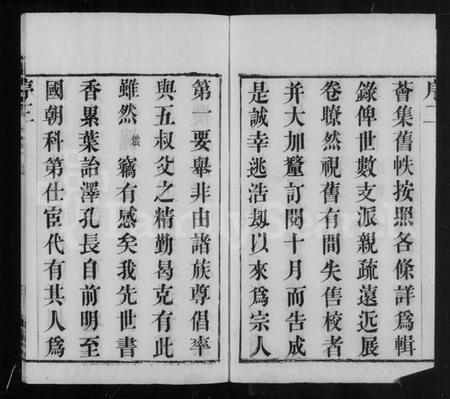 序二
薈集舊帙按照各條詳爲輯
錄俾世數支派親疏遠近展
卷瞭然視舊有間失售校者
并大加釐訂閱十月而告成
是誠幸逃浩刼以來爲宗人
第一要舉非由諸族尊倡率
與五叔父之精勤曷克有此
雖然 竊有感矣我先世書
香累葉詒澤孔長自前明至
國朝科第仕宦代有其人爲
序三